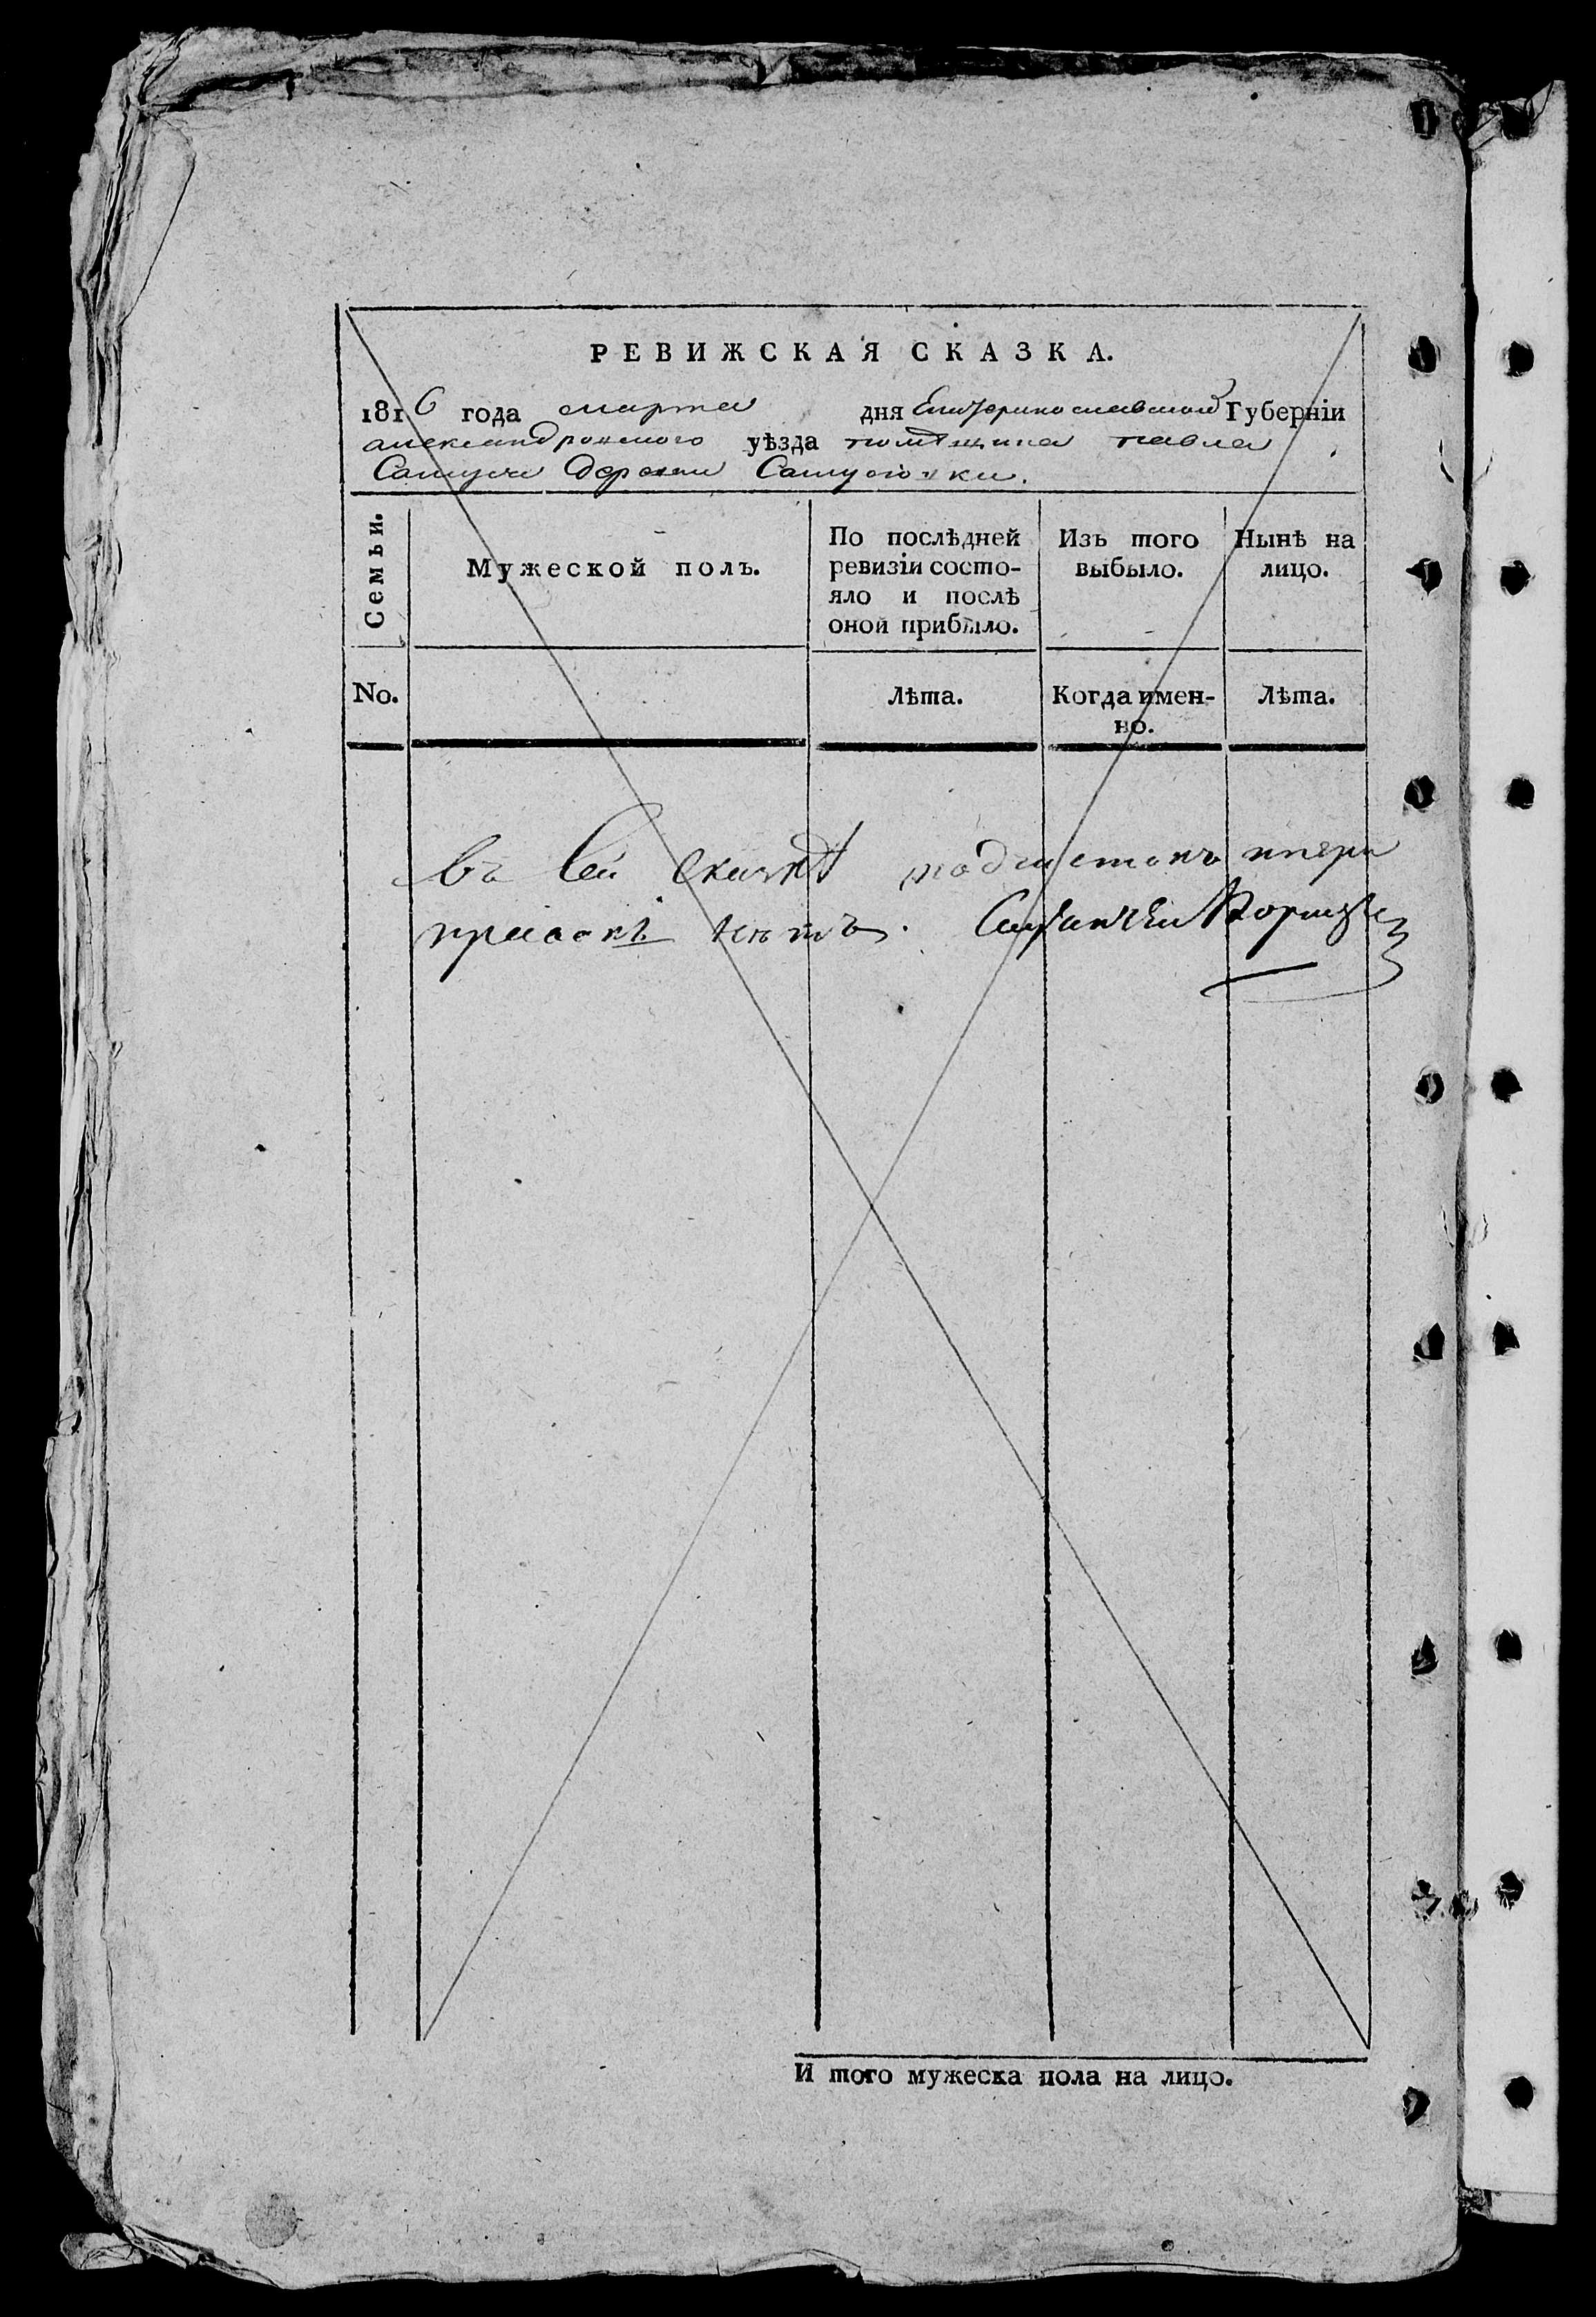 РЕВИЖСКАЯ СКАЗКА.
1816 года марта дня Екатеринославской Губерніи
александровского уѣзда помѣщика павла
деревни
Семьи.
Мужеской полъ.
По послѣдней
ревизіи состо-
яло и послѣ
оной прибыло.
Изъ того
выбыло.
Нынѣ на
лицо.
No.
Лѣта.
Когда имен-
но.
Лѣта.
въ сей скаскѣ подчистокъ
нѣтъ.
И того мужеска пола на лицо.